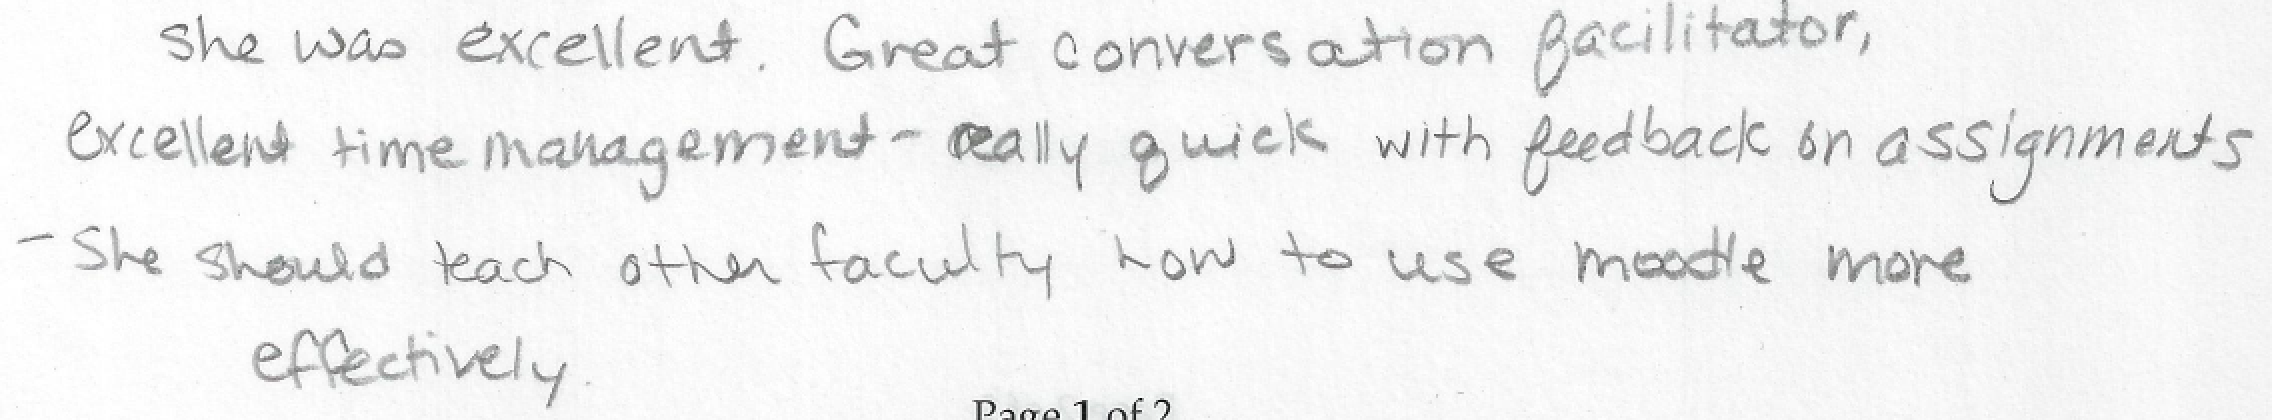 She was excellent. Great conversation facilitator,
excellent time management - really quick with feedback on assignments
- She should teach other faculty how to use moodle more
effectively.
Page 1 of 2